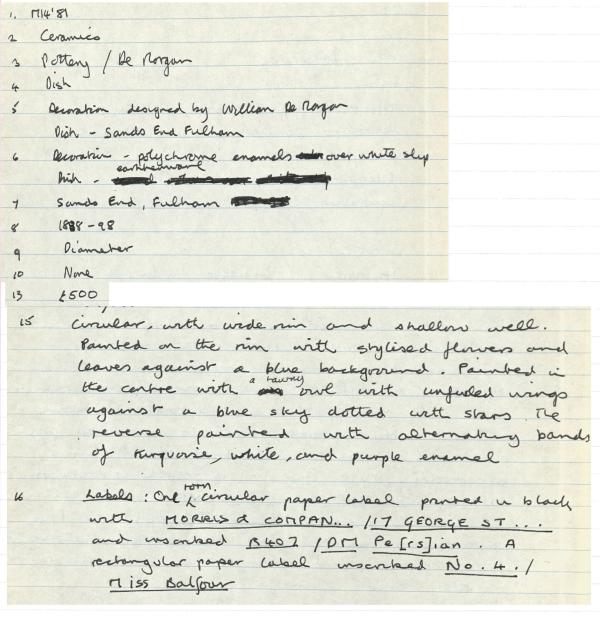 1. M14'81
2 Ceramics
3 Pottery / De Morgan
4 Dish
5 Decoration designed by William De Morgan
Dish - Sands End Fulham
6 Decoration - polychrome enamels over white slip
earthenware
Dish -
7 Sands End, Fulham
8 1888-98
9 Diameter
10 None
13 £500
15 Circular, with wide rim and shallow well.
Painted on the rim with stylised flowers and
leaves against a blue background. Painted in
a tawny
the centre with owl with unfurled wings
against a blue sky dotted with stars. The
reverse painted with alternating bands
of turquoise, white, and purple enamel
16 Labels: One torn circular paper label printed in black
with MORRIS & COMPAN... /17 GEORGE ST...
and inscribed /DM Pe[rs]ian. A
rectangular paper label inscribed No. 4. /
Miss Balfour